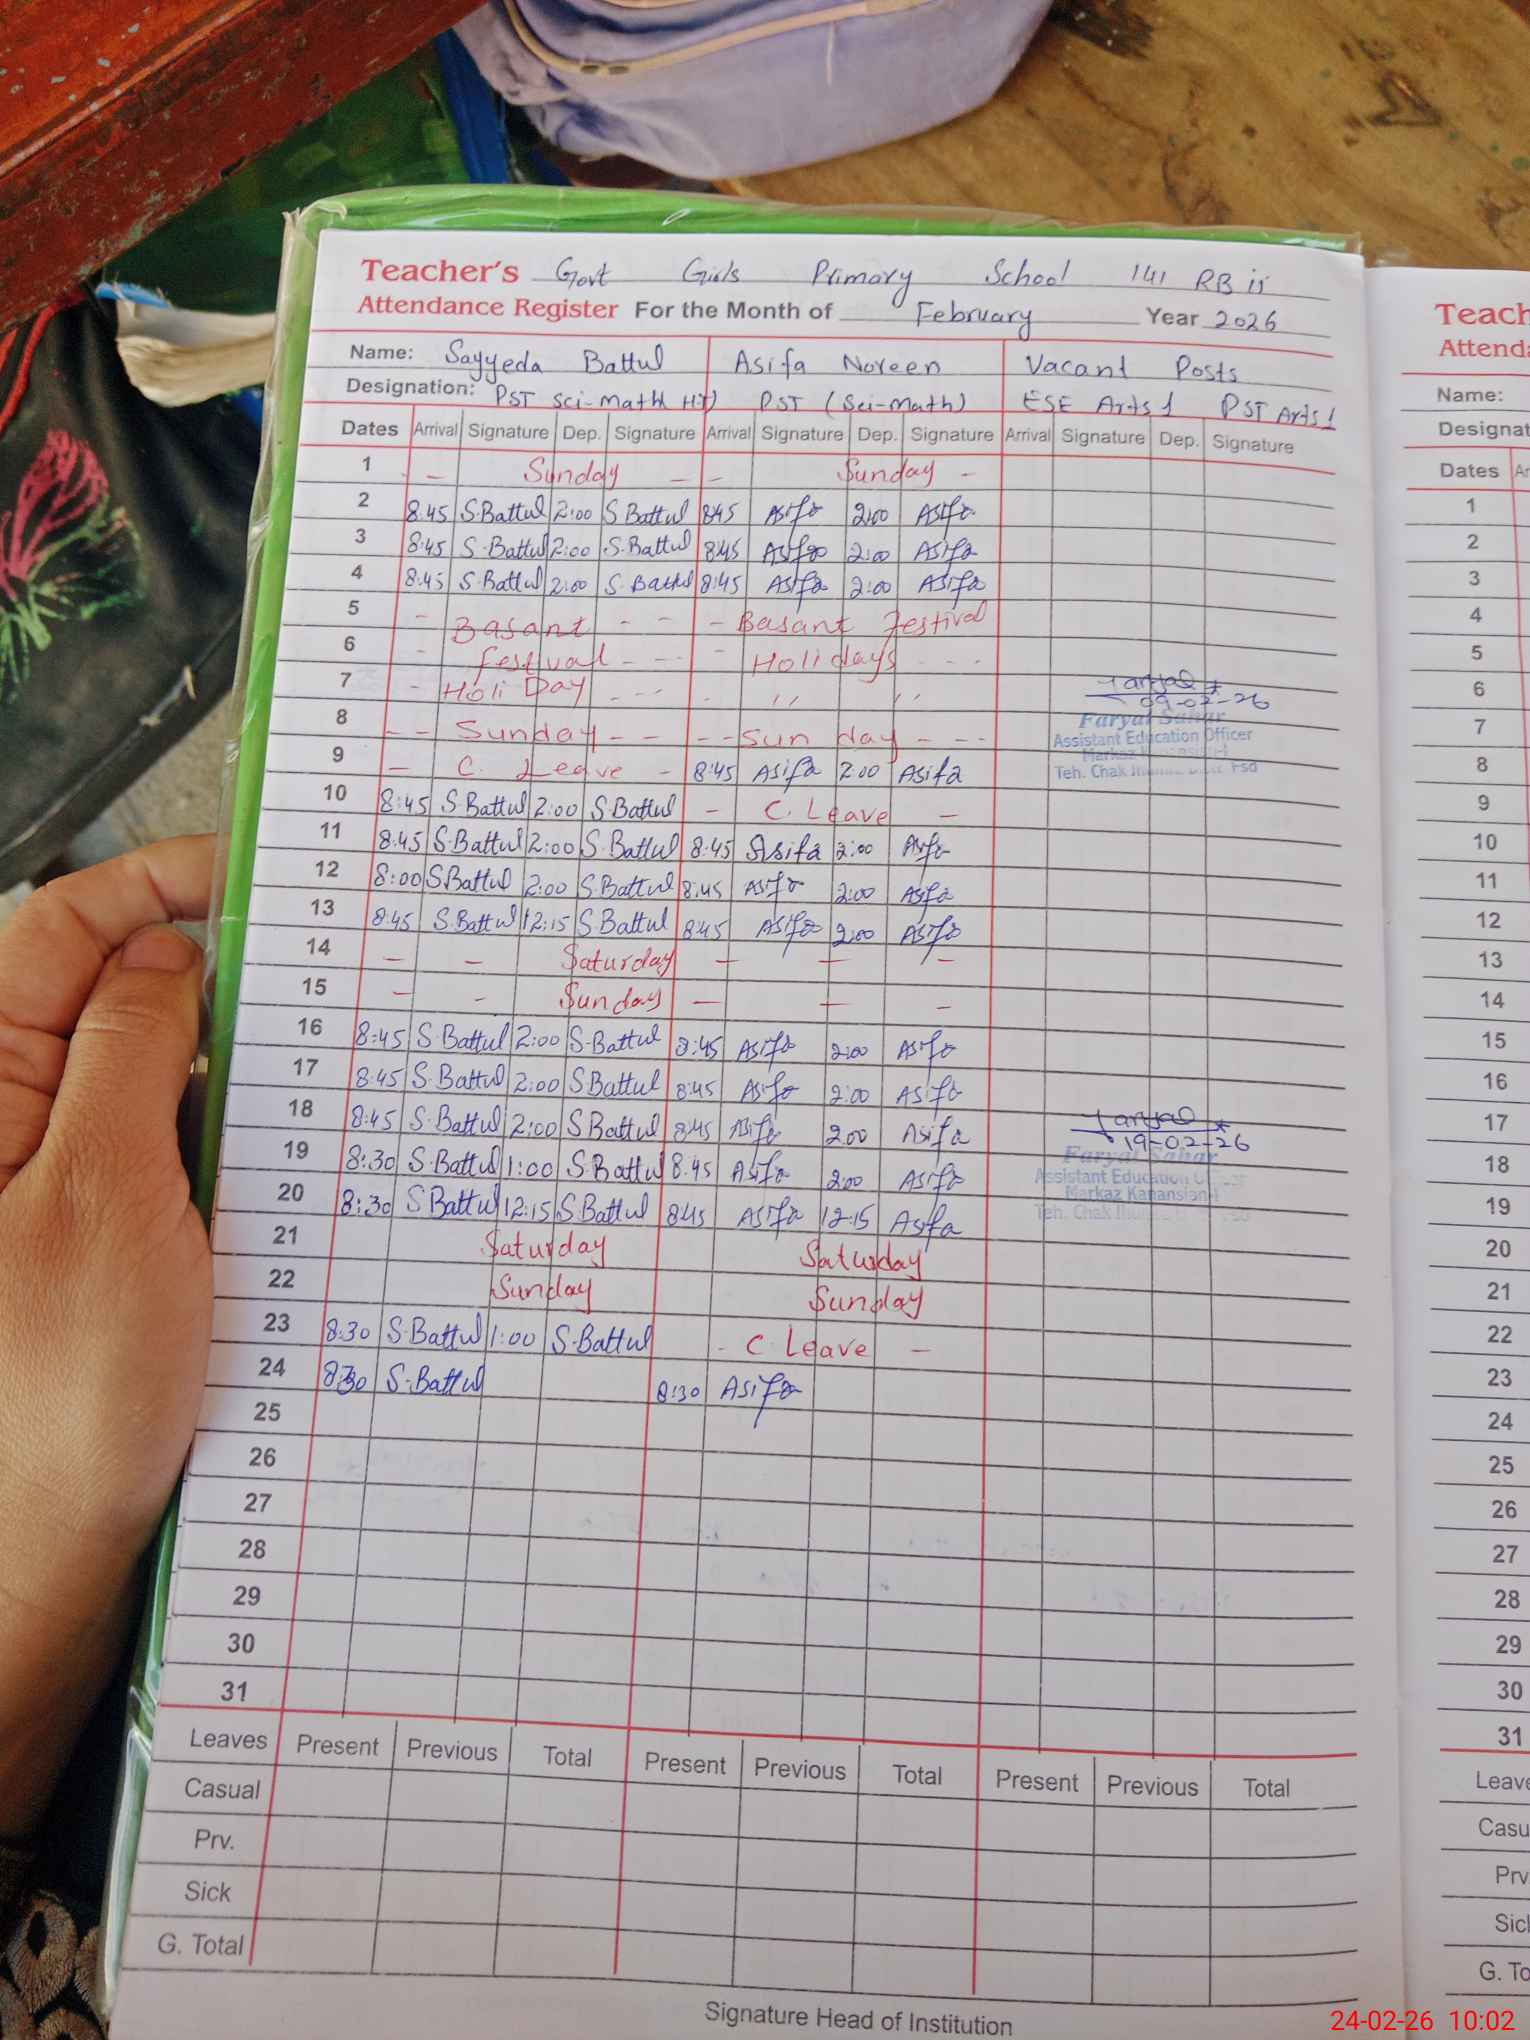 Teacher's Govt Girls Primary School 141 RB ii
Attendance Register For the Month of February Year 2026
Name: Sayyeda Battul Asifa Noreen Vacant Posts
Designation: PST Sci-math HT) PST (Sci-math) ESE Arts 1 PST Arts 1
Dates Arrival Signature Dep. Signature Arrival Signature Dep. Signature Arrival Signature Dep. Signature
1 - Sunday - - Sunday -
2 8:45 S.Battul 2:00 S.Battul 8:45 Asifa 2:00 Asifa
3 8:45 S.Battul 2:00 S.Battul 8:45 Asifa 2:00 Asifa
4 8:45 S.Battul 2:00 S.Battul 8:45 Asifa 2:00 Asifa
5 - Basant - - - Basant Festival
6 - festival - - - - Holidays - - -
7 - Holi Day - - - - ,, ,,
8 - - Sunday - - - - Sunday - - -
9 - C. Leave - 8:45 Asifa 2:00 Asifa
10 8:45 S.Battul 2:00 S.Battul - C. Leave -
11 8:45 S.Battul 2:00 S.Battul 8:45 Asifa 2:00 Asifa
12 8:00 S.Battul 2:00 S.Battul 8:45 Asifa 2:00 Asifa
13 8:45 S.Battul 12:15 S.Battul 8:45 Asifa 2:00 Asifa
14 - - Saturday - - -
15 - - Sunday - - -
16 8:45 S.Battul 2:00 S.Battul 8:45 Asifa 2:00 Asifa
17 8:45 S.Battul 2:00 S.Battul 8:45 Asifa 2:00 Asifa
18 8:45 S.Battul 2:00 S.Battul 8:45 Asifa 2:00 Asifa
19 8:30 S.Battul 1:00 S.Battul 8:45 Asifa 2:00 Asifa
20 8:30 S.Battul 12:15 S.Battul 8:45 Asifa 12:15 Asifa
21 Saturday Saturday
22 Sunday Sunday
23 8:30 S.Battul 1:00 S.Battul - C Leave -
24 8:30 S.Battul 8:30 Asifa
25
26
27
28
29
30
31
09-02-26
Faryal Sahar
Assistant Education Officer
Markaz
Teh. Chak Fsd
19-02-26
Faryal Sahar
Assistant Education
Markaz
Teh. Chak
Leaves Present Previous Total Present Previous Total Present Previous Total
Casual
Prv.
Sick
G. Total
Signature Head of Institution
Teach
Attenda
Name:
Designat
Dates Ar
1
2
3
4
5
6
7
8
9
10
11
12
13
14
15
16
17
18
19
20
21
22
23
24
25
26
27
28
29
30
31
Leave
Casu
Prv
Sick
G. To
24-02-26 10:02